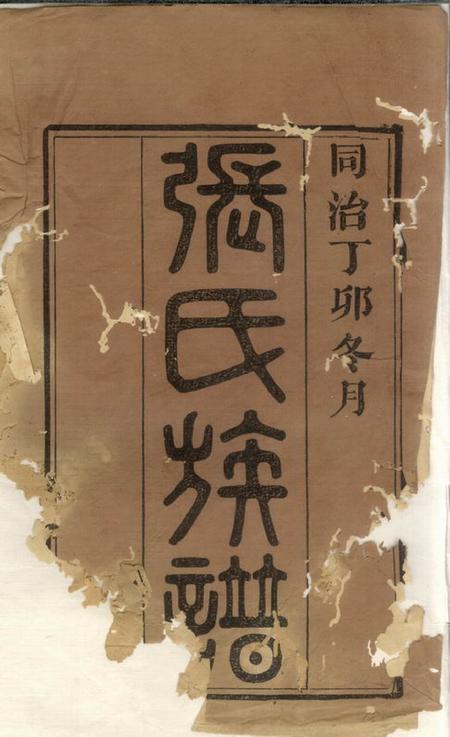 同治丁卯冬月
張氏族譜